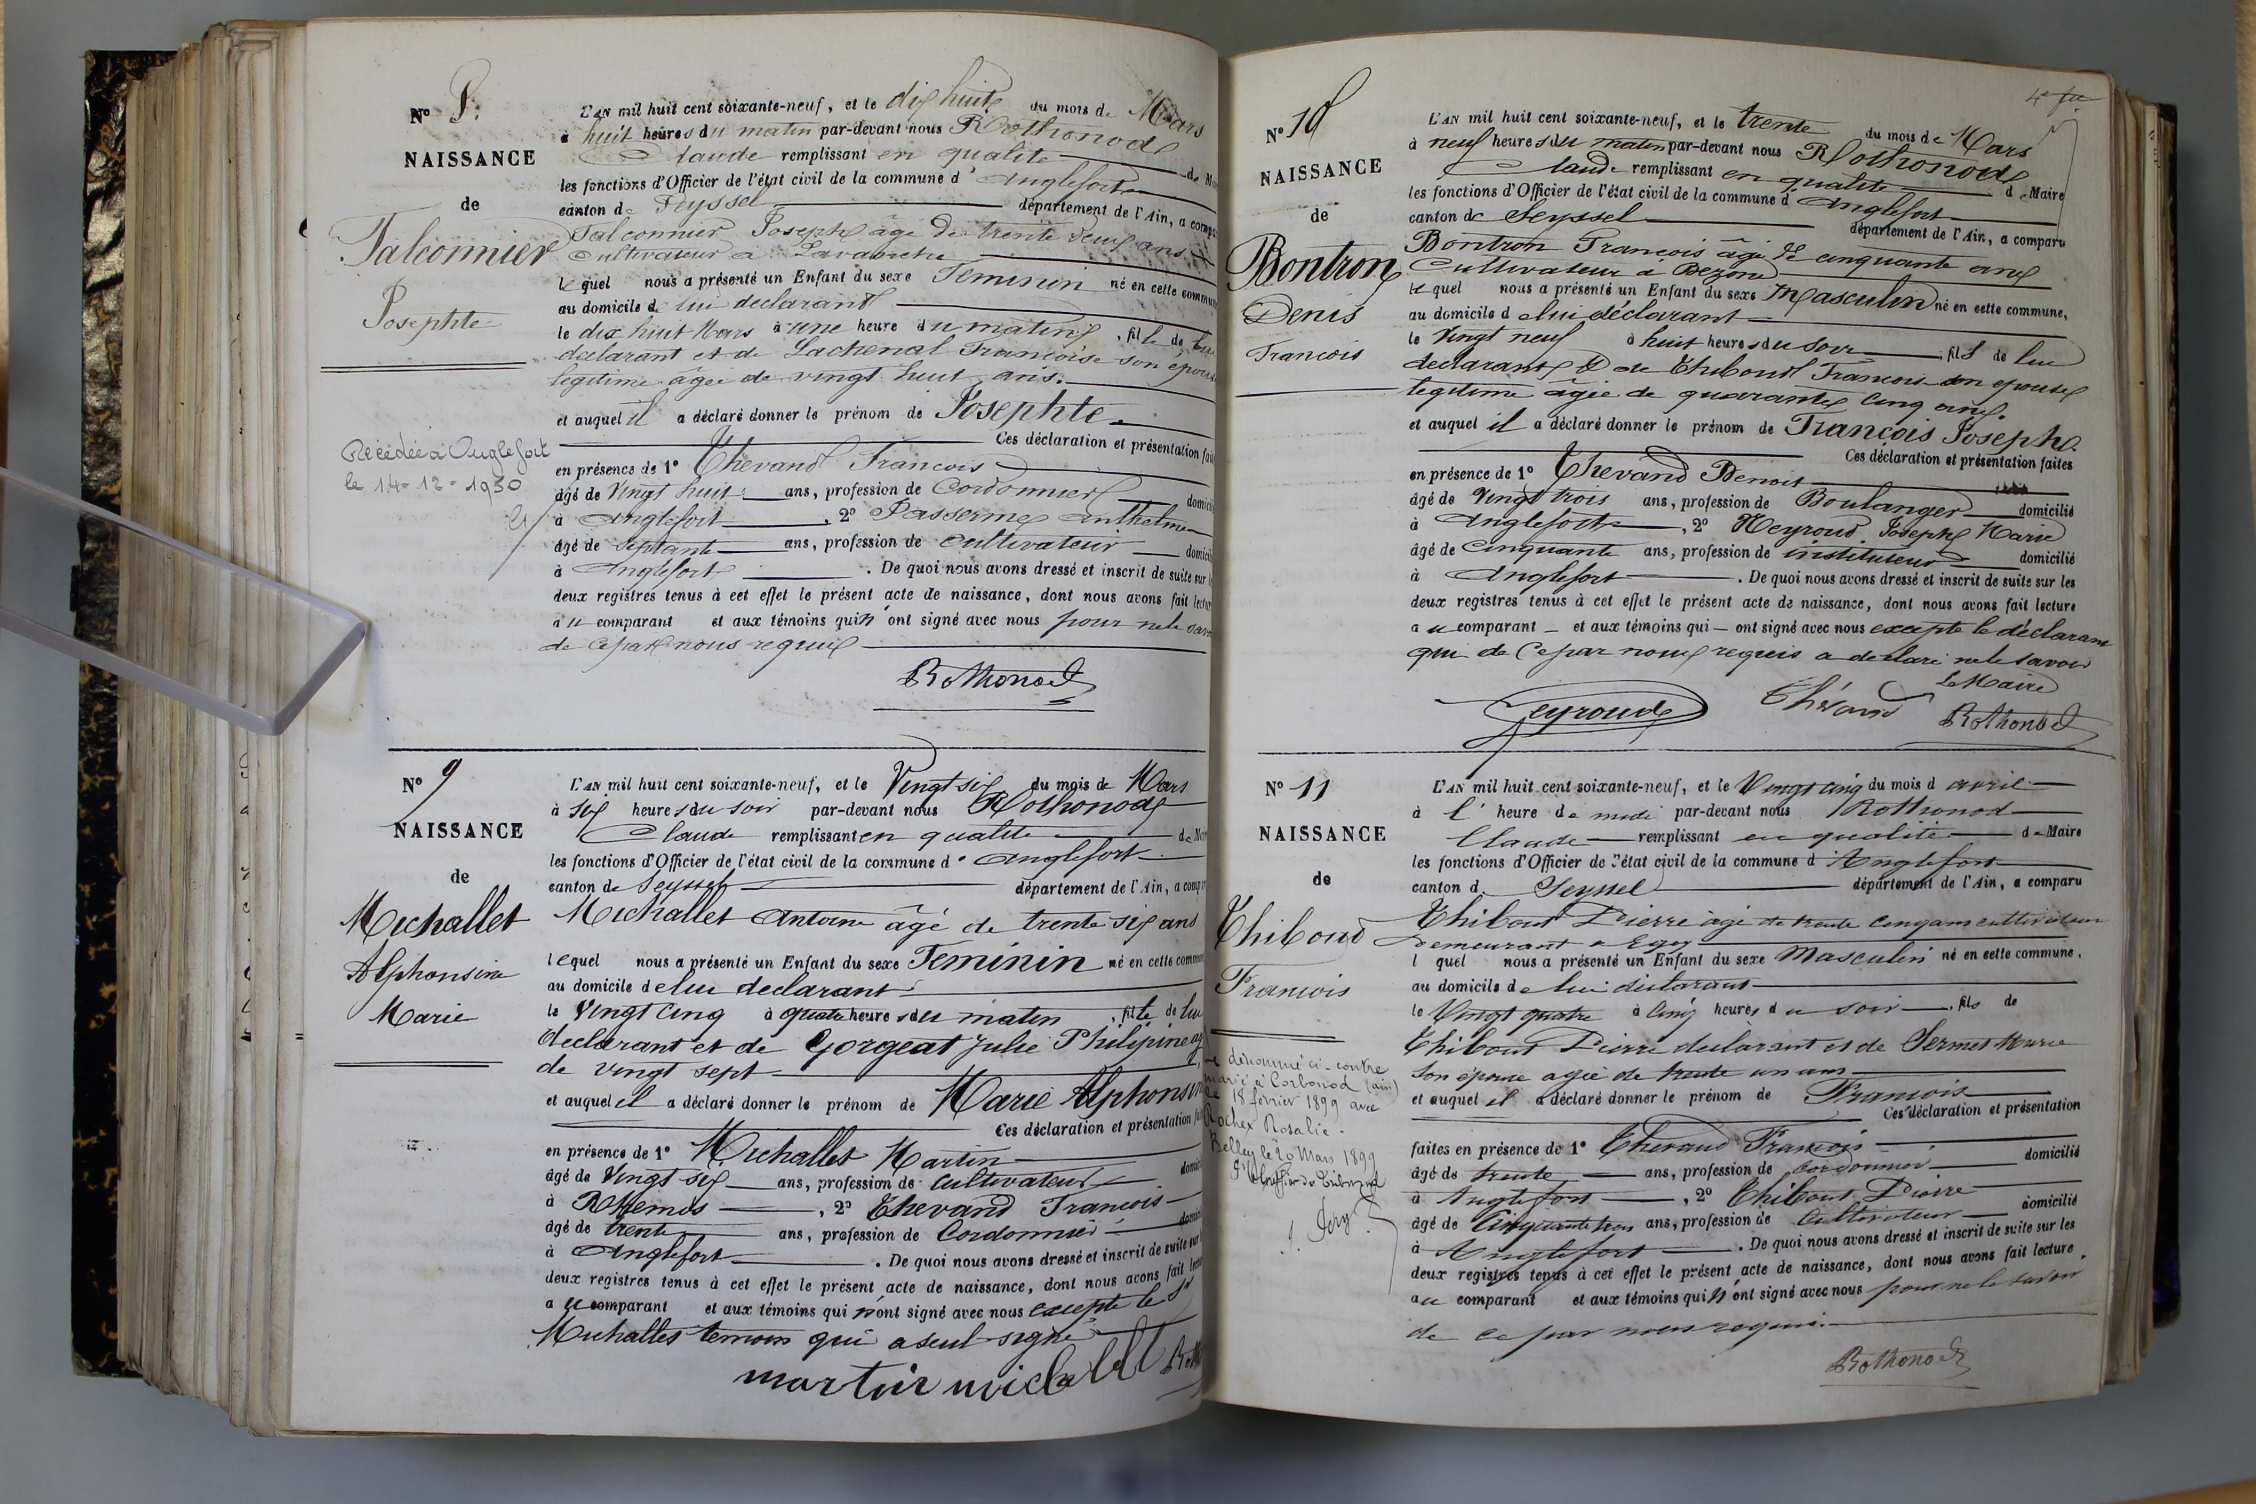 N° 8.
NAISSANCE
de
Falconnier
Josephte
Décédée à Anglefort
le 14-12-1950
L'AN mil huit cent soixante-neuf, et le dix huit du mois de Mars
à huit heures du matin par-devant nous Rothonod
Claude remplissant en qualité de
les fonctions d'Officier de l'état civil de la commune d'Anglefort
canton de Seyssel département de l'Ain, a
Falconnier Joseph âgé de trente neuf ans
Cultivateur à Lavanche
lequel nous a présenté un Enfant du sexe Feminin né en cette
au domicile de lui déclarant
le dix huit Mars à une heure du matin, fille de lui
déclarant et de Lachenal Francoise son
legitime âgée de vingt huit ans.
et auquel il a déclaré donner le prénom de Josephte.
Ces déclaration et présentation
en présence de 1° Thevand Francois
âgé de Vingt huit ans, profession de Cordonnier
à Anglefort, 2° Passerme Anthelme
âgé de Septante ans, profession de cultivateur
à Anglefort. De quoi nous avons dressé et inscrit de suite sur
deux registres tenus à cet effet le présent acte de naissance, dont nous avons fait
au comparant et aux témoins qui n'ont signé avec nous pour ne le
de ce par nous requis
Rothonod
N° 9
NAISSANCE
de
Michallet
Alphonsine
Marie
L'AN mil huit cent soixante-neuf, et le Vingt six du mois de Mars
à six heures du soir par-devant nous Rothonod
Claude remplissant en qualité de
les fonctions d'Officier de l'état civil de la commune d'Anglefort
canton de Seyssel département de l'Ain, a
Michallet Antoine âgé de trente six ans
lequel nous a présenté un Enfant du sexe Féminin né en cette
au domicile de lui declarant
le Vingt cinq à quatre heures du matin, fille de lui
déclarant et de Gorgeat Julie Philipine
de vingt sept
et auquel il a déclaré donner le prénom de Marie Alphonsine
Ces déclaration et présentation
en présence de 1° Michallet Martin
âgé de Vingt six ans, profession de cultivateur
à Rhemos, 2° Thevand Francois
âgé de trente ans, profession de Cordonnier
à Anglefort. De quoi nous avons dressé et inscrit de suite sur
deux registres tenus à cet effet le présent acte de naissance, dont nous avons fait
au comparant et aux témoins qui n'ont signé avec nous excepté le
Michallet temoin qui a seul signé
martin michallet
4e fet
N° 10
NAISSANCE
de
Bontron
Denis
Francois
L'AN mil huit cent soixante-neuf, et le trente du mois de Mars
à neuf heures du matin par-devant nous Rothonod
Claude remplissant en qualité de Maire
les fonctions d'Officier de l'état civil de la commune d'Anglefort
canton de Seyssel département de l'Ain, a comparu
Bontron Francois âgé de cinquante ans
Cultivateur à Bezone
lequel nous a présenté un Enfant du sexe Masculin né en cette commune,
au domicile de lui déclarant
le Vingt neuf à huit heures du soir, fils de lui
déclarant et de Thiboud Francois son epouse
legitime âgée de quarante cinq ans.
et auquel il a déclaré donner le prénom de François Joseph.
Ces déclaration et présentation faites
en présence de 1° Thevand Benoit
âgé de Vingt trois ans, profession de Boulanger domicilié
à Anglefort, 2° Neyroud Joseph Marie
âgé de Cinquante ans, profession de instituteur domicilié
à Anglefort. De quoi nous avons dressé et inscrit de suite sur les
deux registres tenus à cet effet le présent acte de naissance, dont nous avons fait lecture
au comparant et aux témoins qui ont signé avec nous excepté le déclarant
qui de ce par nous requis a declaré ne le savoir
Le Maire
Neyroud Thévand Rothonod
N° 11
NAISSANCE
de
Thiboud
Francois
Le dénommé ci-contre
marié à Corbonod (ain)
le 18 février 1899 avec
Rochex Rosalie.
Belley le 20 Mars 1899
L'AN mil huit cent soixante-neuf, et le Vingt cinq du mois d avril
à l' heure de midi par-devant nous Rothonod
Claude remplissant en qualité de Maire
les fonctions d'Officier de l'état civil de la commune d'Anglefort
canton d. Seyssel département de l'Ain, a comparu
Thiboud Pierre âgé de trente cinq ans cultivateur
demeurant a
l quel nous a présenté un Enfant du sexe Masculin né en cette commune,
au domicile de lui déclarant
le Vingt quatre à cinq heures du soir, fils de
Thiboud Pierre déclarant et de Sermet Marie
son épouse agée de trente un ans
et auquel il a déclaré donner le prénom de Francois
Ces déclaration et présentation
faites en présence de 1° Thevand Francois
âgé de trente ans, profession de Cordonnier domicilié
à Anglefort, 2° Thiboud Pierre
âgé de Cinquante trois ans, profession de Cultivateur domicilié
à Anglefort. De quoi nous avons dressé et inscrit de suite sur les
deux registres tenus à cet effet le présent acte de naissance, dont nous avons fait lecture
au comparant et aux témoins qui n'ont signé avec nous pour ne le savoir
de ce par nous requis.
Rothonod